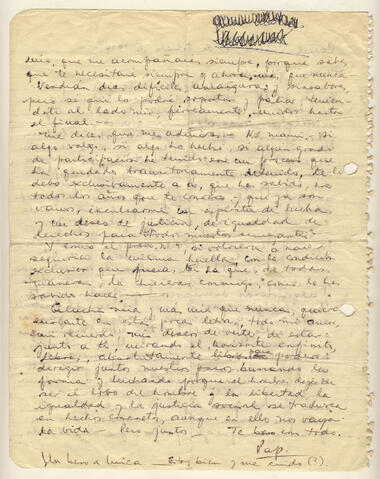 mia, que me acompañaras siempre, porque sabes
que te necesitaré siempre y ahora, más que nunca
Vendrán días difíciles, amargura y sinsabores,
pero se que lo podré soportar
dote al lado mio, unidos hasta
el final
me dices que me admiras. No mami. Si
algo valgo, si algo he hecho, si algun grado
de participación he tenido en un proceso que
ha quedado transitoriamente detenido, te lo
debo exclusivamente a vos, que has sabido, en
todos los años que te conozco, que ya son
varios, inculcarme un espíritu de lucha
y un deseo de justicia, de igualdad de
derechos para todos nuestros semejantes.
Y como el poeta, si volviera a nacer
seguiría la misma huella, con la condición
exclusiva que pueda, de todas
maneras, la hicieras conmigo, como lo has
sabido hacer.
mia, mas mia que nunca, quiero
en esta todo mi amor,
mi recuerdo, mis deseos de verte, de estar
junto a ti, mirando el horizonte infinito,
libres, absolutamente libres para poder
dirigir juntos nuestros pasos buscando la
forma y luchando porque el hombre deje de
ser el lobo del hombre y la libertad la
igualdad y la justicia social se traduzca
en hechos concretos, aunque en ello nos vaya
la vida - Pero juntos - Te beso con todo.
Papi
Un beso a Mica - Estoy bien y me cuido (?).